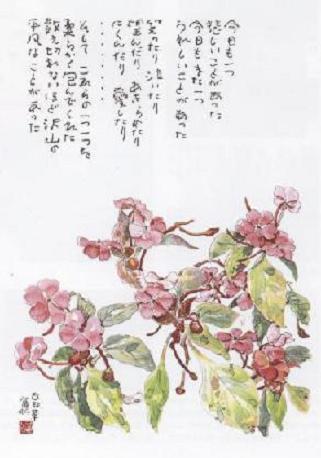 今日も一つ
悲しいことがあった
今日もまた一つ
うれしいことがあった
笑ったり 泣いたり
望んだり あきらめたり
にくんだり 愛したり
・・・・・・・
そして これらの一つ一つを
柔らかく包んでくれた
数え切れないほど沢山の
平凡なことがあった
日日草
富弘